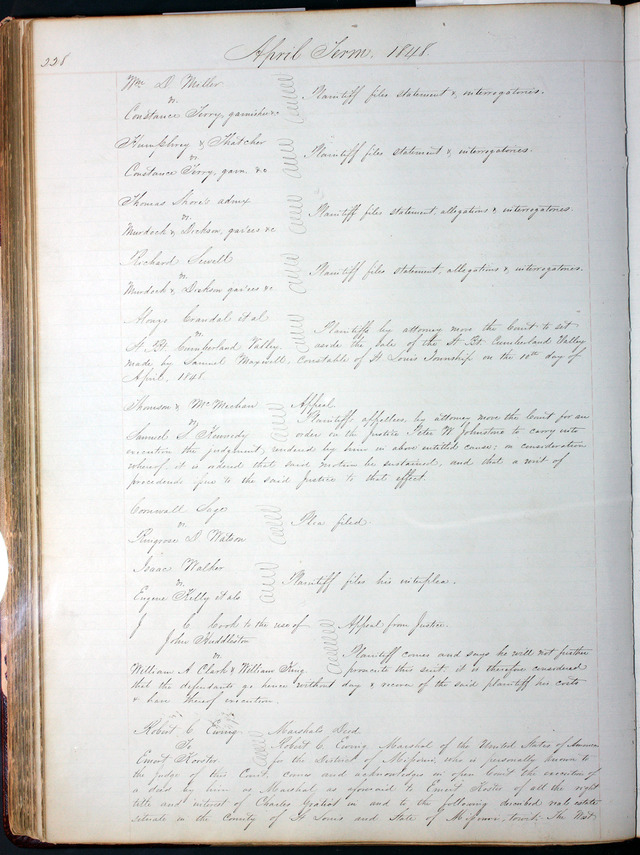 228
April Term. 1848.
Wm D. Miller
vs.
Constance Terry, garnishee
Plaintiff files statement &, interrogatories.
Humphrey & Thatcher
vs.
Constance Terry, garn. &c
Plaintiff files statement &, interrogatories.
Thomas Shore's admx
vs.
Murdoch &, Dickson, gar'ees &c
Plaintiff files statement, allegations &, interrogatories.
Richard Sewell
vs.
Murdoch &, Dickson gar'ees &c
Plaintiff files statement, allegations &, interrogatories.
Alonzo Crandal et al
vs.
St. Bt. Cumberland Valley.
Plaintiffs by attorney move the Court to set
aside the sale of the St. Bt. Cumberland Valley
made by Samuel Maxwell, constable of St Louis Township on the 10th day of
April, 1848.
Thomson & McMechan
vs
Samuel S. Kennedy
Appeal.
Plaintiffs, appellees, by attorney move the Court for an
order on the Justice Peter W Johnstone to carry into
execution the judgment, rendered by him in above entitled cause; in consideration
whereof, it is ordered that said motion be sustained, and that a writ of
procedendo give to the said Justice to that effect.
Cornwall Sage
vs
Ringrose D. Watson
Plea filed.
Isaac Walker
vs.
Eugene Kelly et als
Plaintiff files his interplea.
J C Cook to the use of
John Huddleston
vs
William A. Clark & William King.
Appeal from Justice.
Plaintiff comes and says he will not further
prosecute this suit, it is therefore considered
that the defendants go hence without day & recover of the said plaintiff his costs
& have thereof execution.
Robert C. Ewing
To
Ernst
Marshals Deed
Robert C. Ewing Marshal of the United States of America
for the District of Missouri, who is personally known to
the judge of this Court, comes and acknowledges in open Court the execution of
a deed by him as Marshal as aforesaid to Ernst of all the right
title and interest of Charles Gratiot in and to the following described real estate
situate in the County of St Louis and State of Missouri, towit: The West